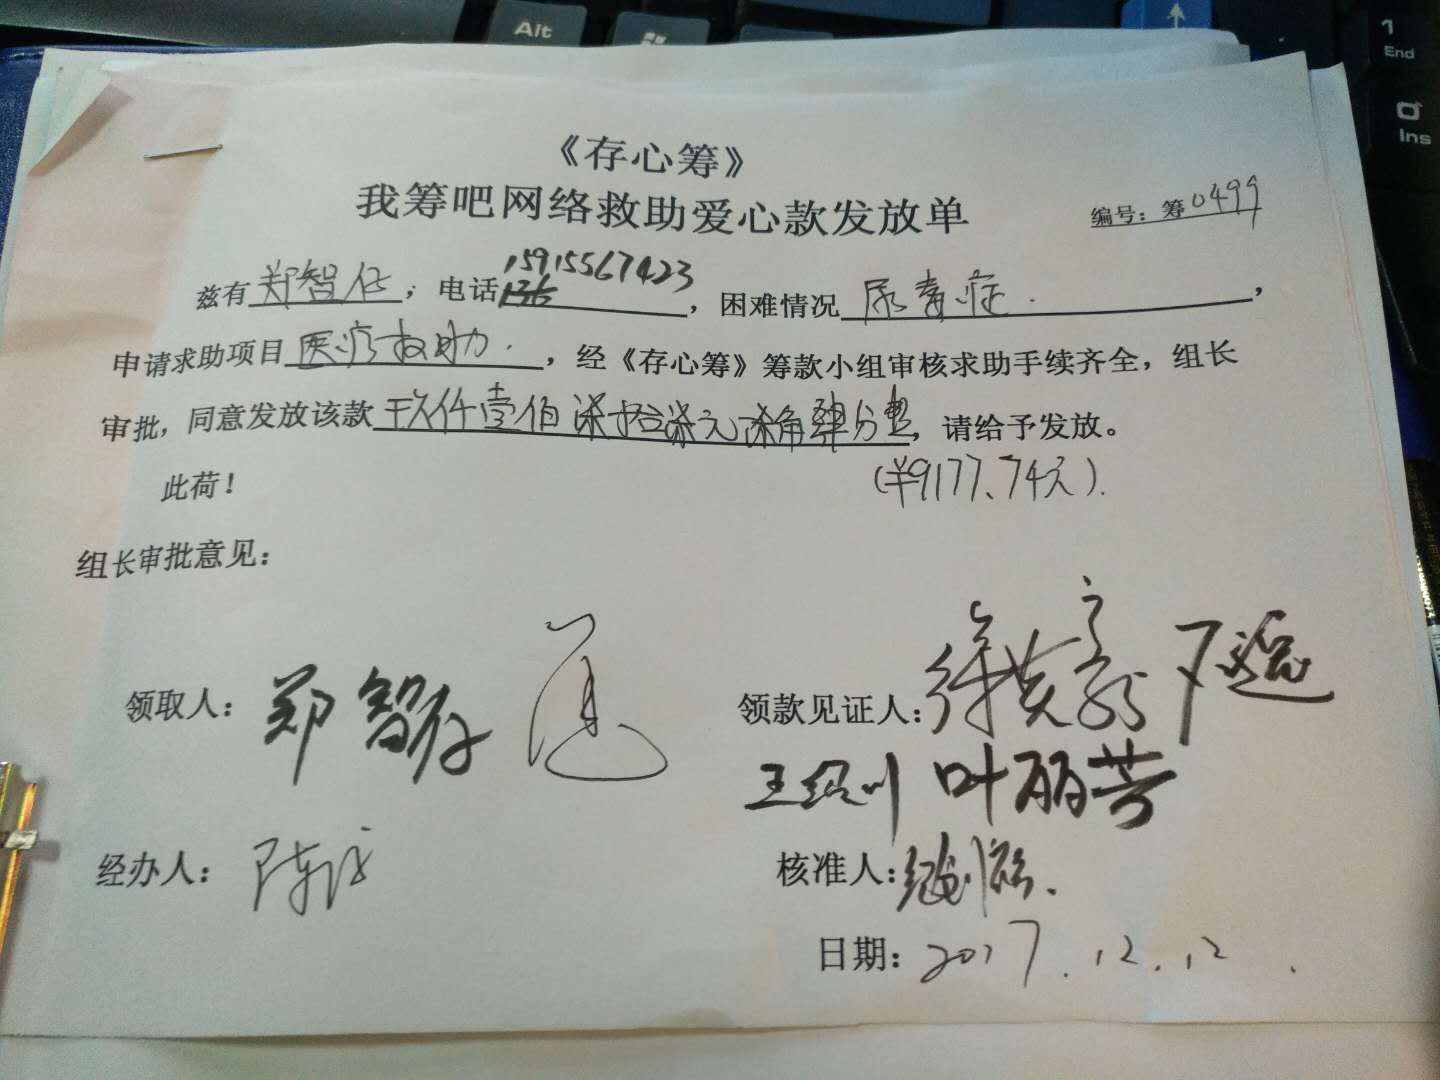 Alt
1
End
Ins
《存心筹》
我筹吧网络救助爱心款发放单
编号：筹0499
兹有郑智任，电话15915567423，困难情况尿毒症.，
申请求助项目医疗救助.，经《存心筹》筹款小组审核求助手续齐全，组长
审批，同意发放该款玖仟壹佰柒拾柒元柒角肆分整，请给予发放。
(¥9177.74元).
此荷！
组长审批意见：
领取人：郑智
领款见证人：
王绍川 叶丽芳
经办人：陈
核准人：
日期：2017.12.12.